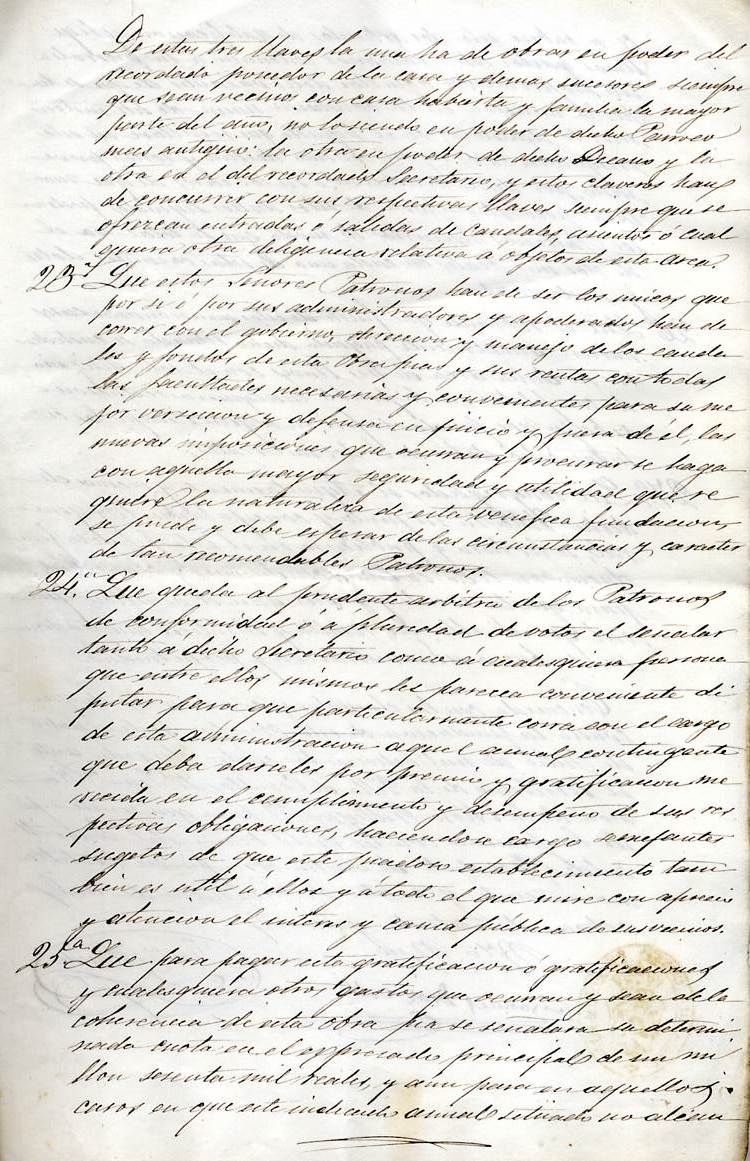 De estas tres llaves la una ha de obrar en poder del
recordado poseedor de la casa y demas sucesores siempre
que sean vecinos con casa habierta y familia la mayor
parte del año, no lo siendo en poder de dicho Parroco
mas antiguo: la otra en poder de dicho Decano y la
otra en el del recordado Secretario, y estos claveros han
de concurrir con sus respectivas llaves siempre que se
ofrezcan entradas ó salidas de caudales, asientos ó cual
quiera otra diligencia relativa a objetos de esta Arca.
23ª Que estos Señores Patronos han de ser los unicos que
por se ó por sus administradores y apoderados han de
correr con el gobierno, direccion y manejo de los cauda
les y fondos de esta Obra pia y sus rentas con todas
las facultades necesarias y convenientes para su me
jor verseicion y defensa en juicio y fuera de él, las
nuevas imposiciones que ocurran y procurar se haga
con aquella mayor seguridad y utilidad que re
quiere la naturaleza de esta venefica fundacion,
se puede y debe esperar de las circunstancias y caracter
de tan recomendables Patronos.
24ª Que queda al prudente arbitrio de los Patronos
de conformidad ó a pluridad de votos el señalar
tanto á dicho Secretario como á cualesquiera persona
que entre ellos mismos les parezca conveniente di
putar para que particularmente corra con el cargo
de esta administracion aquel anual contingente
que deba darseles por premio y gratificacion me
recida en el cumplimiento y desempeño de sus res
pectivas obligaciones, haciendose cargo semejantes
sugetos de que este piadoso establecimiento tam
bien es util á ellos y a todo el que mire con aprecio
y atencion el interes y causa publica de sus vecinos.
25ª Que para pagar esta gratificacion ó gratificaciones
y cualesquiera otros gastos que ocurran y sean de la
coherencia de esta obra pia se señalara su determi
nada cuota en el expresado principal de un mi
llon sesenta mil reales, y aun para en aquellos
casos en que este indicado anual situado no alcan